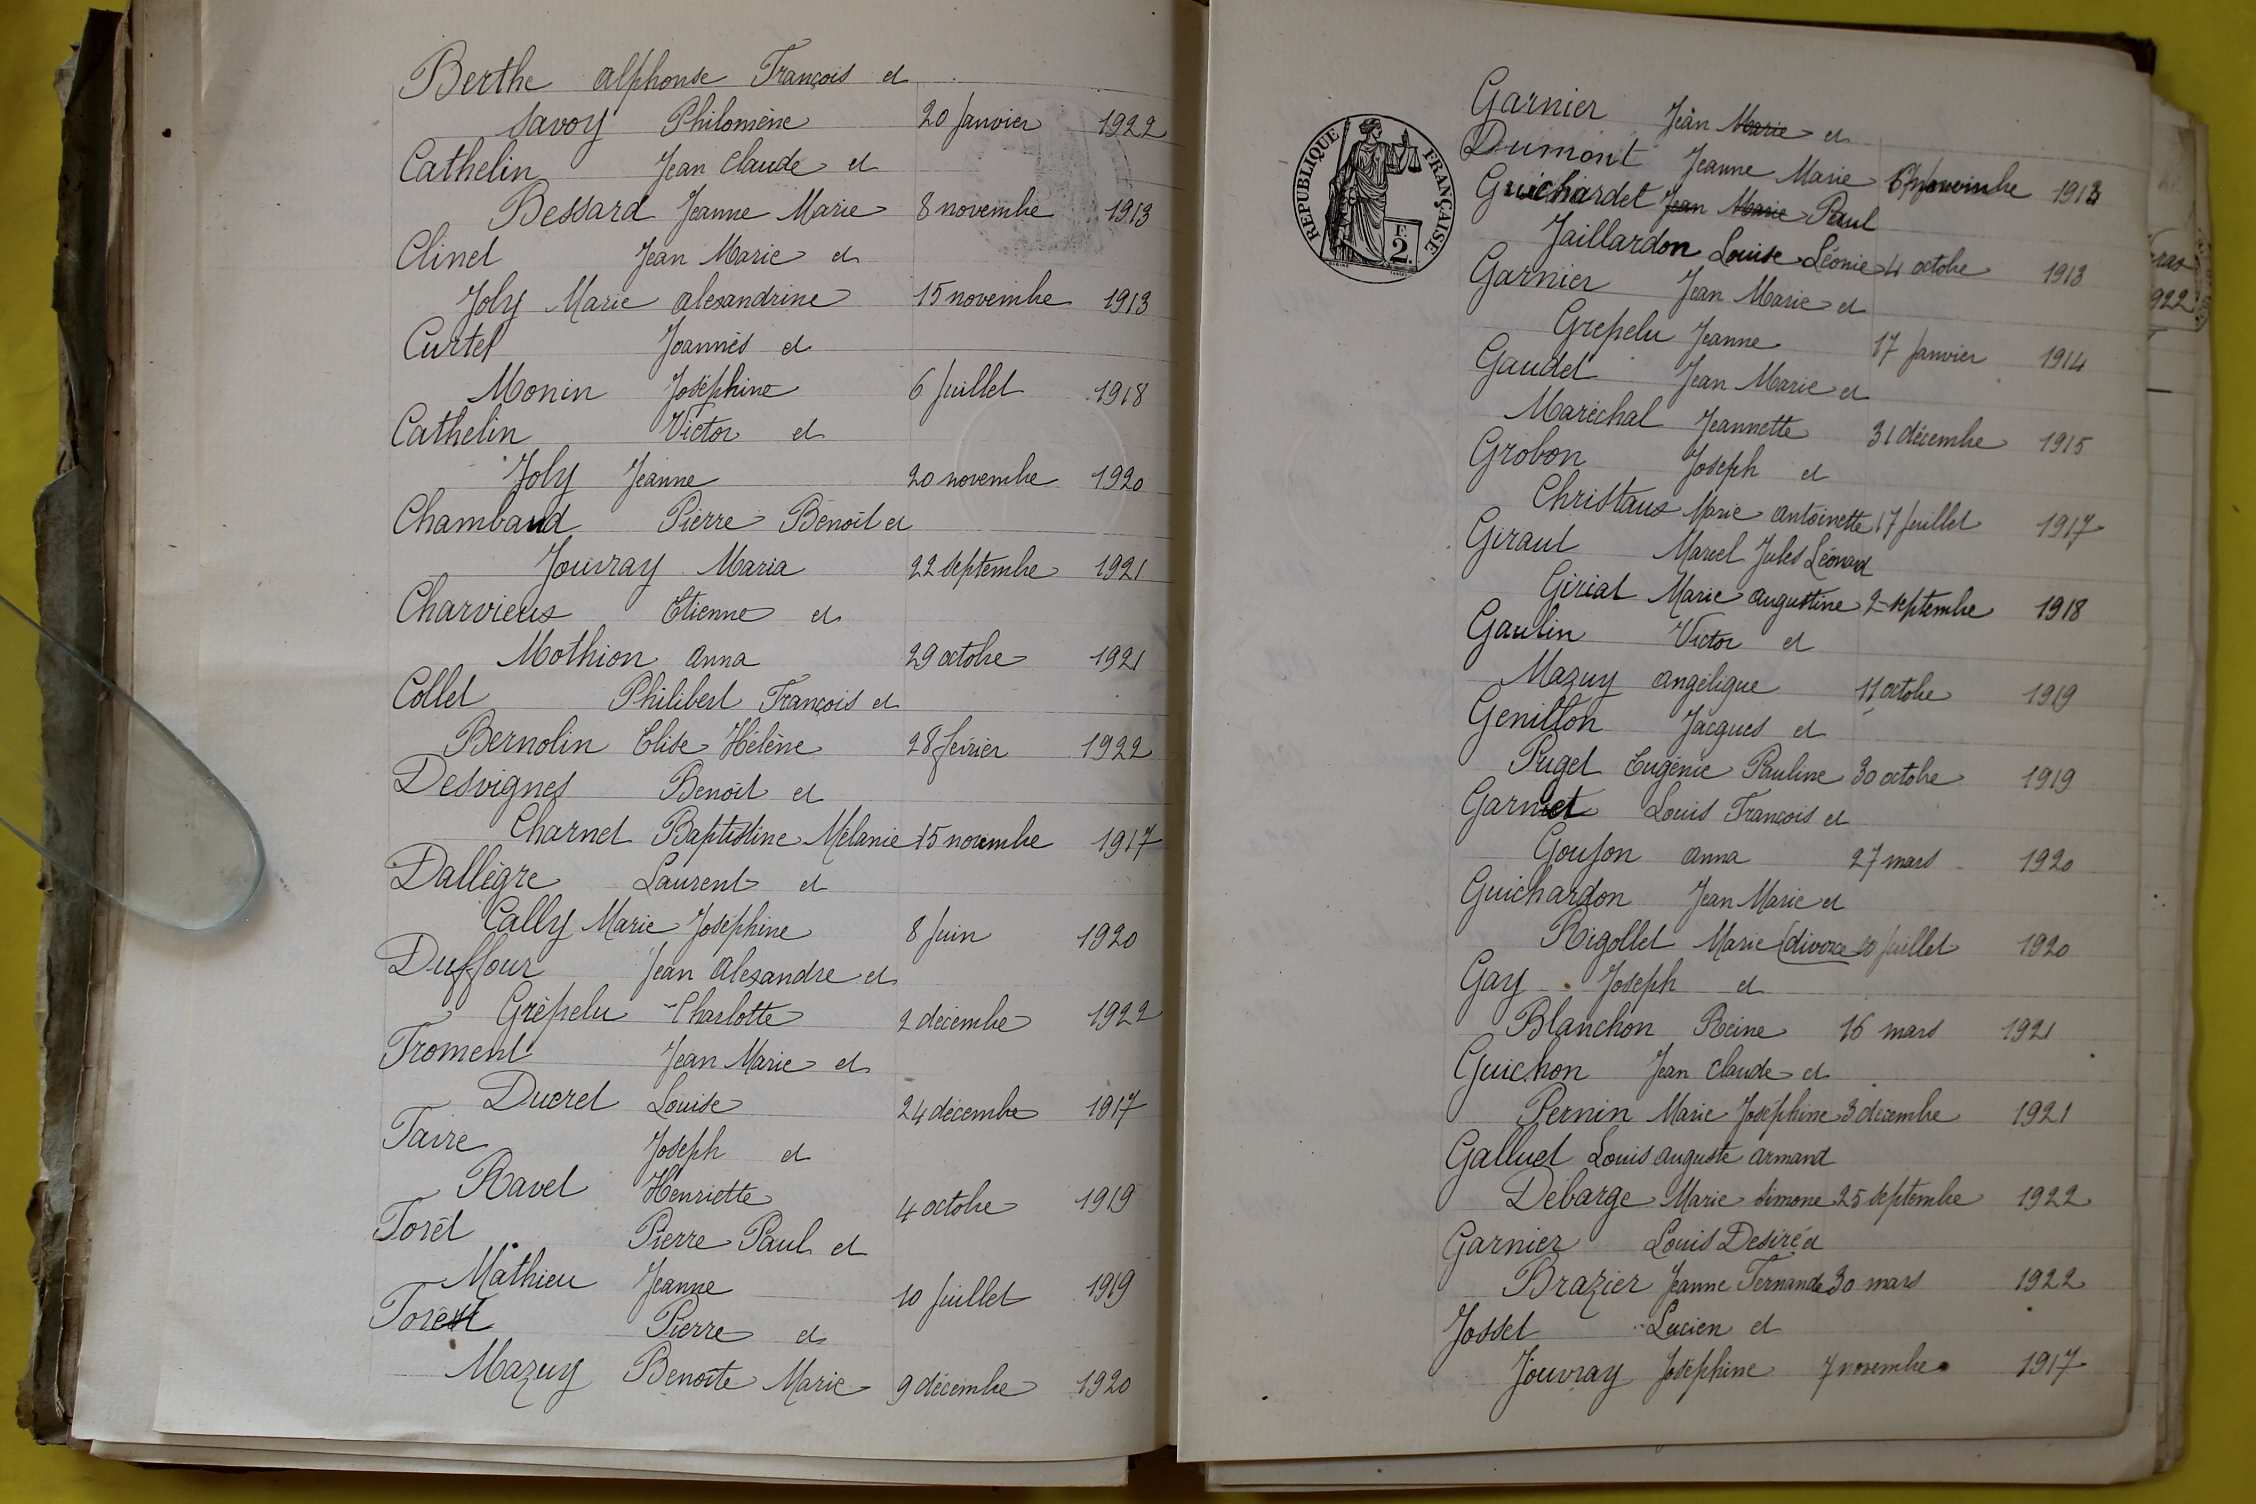 Berthe Alphonse François et
Savoy Philomène 20 Janvier 1922
Cathelin Jean Claude et
Bessard Jeanne Marie 8 novembre 1913
Clinet Jean Marie et
Joly Marie Alexandrine 15 novembre 1913
Curtet Joannès et
Monin Joséphine 6 Juillet 1918
Cathelin Victor et
Joly Jeanne 20 novembre 1920
Chambaud Pierre Benoît et
Jouvray Maria 22 septembre 1921
Charvieux Etienne et
Mothion Anna 29 octobre 1921
Collet Philibert François et
Bernolin Elise Hélène 28 février 1922
Desvignes Benoît et
Charnet Baptistine Mélanie 15 novembre 1917
Dallègre Laurent et
Cally Marie Joséphine 8 Juin 1920
Duffour Jean Alexandre et
Grépelu Charlotte 2 décembre 1922
Froment Jean Marie et
Ducret Louise 24 décembre 1917
Favre Joseph et
Ravet Henriette 4 octobre 1919
Forêt Pierre Paul et
Mathieu Jeanne 10 Juillet 1919
Forêt Pierre et
Mazuy Benoîte Marie 9 décembre 1920
RÉPUBLIQUE FRANÇAISE
2 F.
Garnier Jean Marie et
Dumont Jeanne Marie novembre 1913
Guichardet Jean Marie Paul
Jaillardon Louise Léonie 4 octobre 1913
Garnier Jean Marie et
Grepelu Jeanne 17 Janvier 1914
Gaudet Jean Marie et
Maréchal Jeannette 31 décembre 1915
Grobon Joseph et
Christaux Marie Antoinette 17 Juillet 1917
Giraut Marcel Jules Léonard
Giriat Marie Augustine 2 septembre 1918
Gaulin Victor et
Mazuy Angélique 11 octobre 1919
Genillon Jacques et
Puget Eugénie Pauline 30 octobre 1919
Garnier Louis François et
Goujon Anna 27 mars 1920
Guichardon Jean Marie et
Rigollet Marie (divorce 10 Juillet 1920
Gay Joseph et
Blanchon Reine 16 mars 1921
Guichon Jean Claude et
Pernin Marie Joséphine 3 décembre 1921
Galluet Louis Auguste Armand
Debarge Marie Simone 25 septembre 1922
Garnier Louis Desiré et
Brazier Jeanne Fernande 30 mars 1922
Josset Lucien et
Jouvray Joséphine 7 novembre 1917